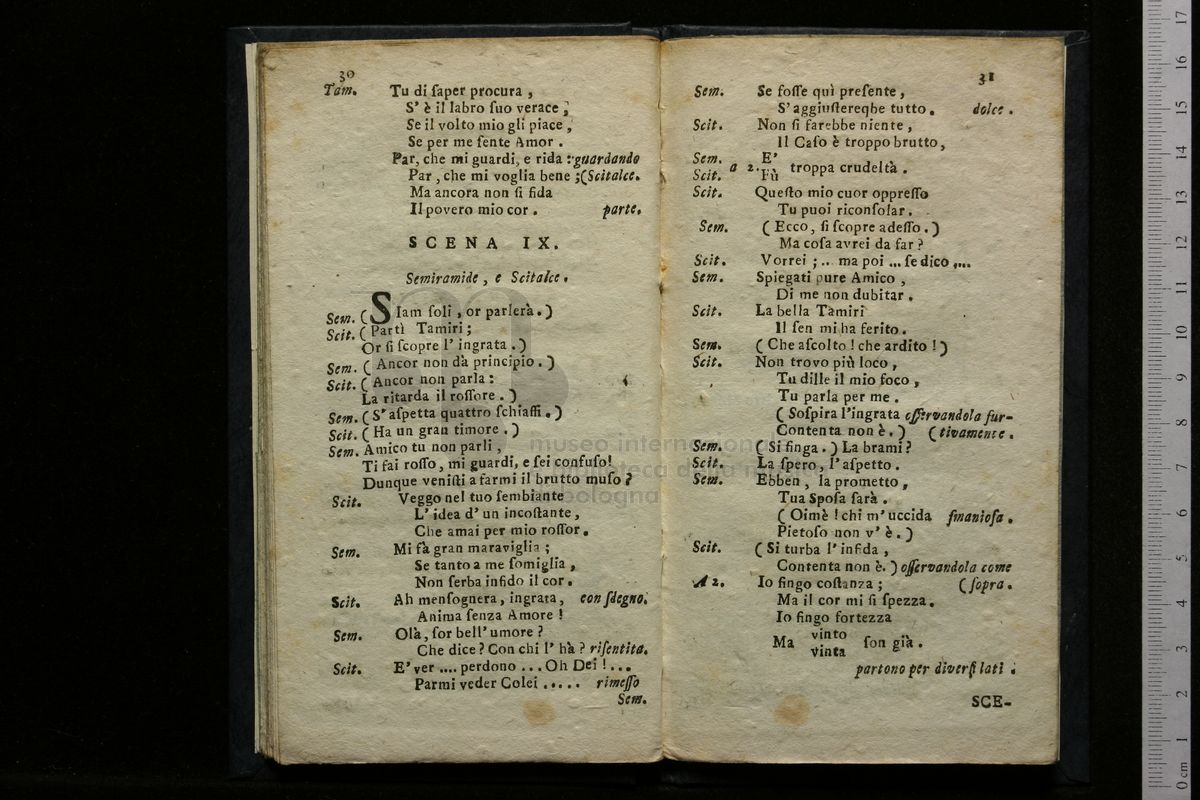 30
Tam. Tu di ſaper procura ,
S' è il labro ſuo verace ;
Se il volto mio gli piace ,
Se per me ſente Amor .
Par, che mi guardi, e rida : guardando
Par , che mi voglia bene ; (Scitalce.
Ma ancora non ſi fida
Il povero mio cor . parte.
SCENA IX.
Semiramide , e Scitalce .
Sem. ( SIam ſoli , or parlerà . )
Scit. ( Partì Tamiri ;
Or ſi ſcopre l' ingrata . )
Sem. ( Ancor non dà principio . )
Scit. ( Ancor non parla :
La ritarda il roſſore . )
Sem. ( S' aſpetta quattro ſchiaffi . )
Scit. ( Ha un gran timore . )
Sem. Amico tu non parli ,
Ti fai roſſo , mi guardi, e ſei confuſo !
Dunque veniſti a farmi il brutto muſo ?
Scit. Veggo nel tuo ſembiante
L' idea d' un incoſtante ,
Che amai per mio roſſor .
Sem. Mi fà gran maraviglia ;
Se tanto a me ſomiglia ,
Non ſerba infido il cor .
Scit. Ah menſognera, ingrata, con ſdegno.
Anima ſenza Amore !
Sem. Olà , ſor bell' umore ?
Che dice ? Con chi l' hà ? riſentita.
Scit. E' ver .... perdono ... Oh Dei ! ...
Parmi veder Colei ..... rimeſſo
Sem.
31
Sem. Se foſſe quì preſente ,
S' aggiuſtereqbe tutto . dolce .
Scit. Non ſi farebbe niente ,
Il Caſo è troppo brutto,
Sem. E'
a 2. troppa crudeltà .
Scit. Fù
Scit. Queſto mio cuor oppreſſo
Tu puoi riconſolar .
Sem. ( Ecco, ſi ſcopre adeſſo . )
Ma coſa avrei da far ?
Scit. Vorrei ; .. ma poi ... ſe dico ....
Sem. Spiegati pure Amico ,
Di me non dubitar .
Scit. La bella Tamiri
Il ſen mi ha ferito .
Sem. ( Che aſcolto ! che ardito ! )
Scit. Non trovo più loco ,
Tu dille il mio foco ,
Tu parla per me .
( Soſpira l'ingrata oſſervandola fur-
Contenta non è . ) (tivamente .
Sem. ( Si finga . ) La brami ?
Scit. La ſpero , l' aſpetto .
Sem. Ebben , la prometto ,
Tua Spoſa ſarà .
( Oimè ! chi m' uccida ſmanioſa .
Pietoſo non v' è . )
Scit. ( Si turba l' infida ,
Contenta non è . ) oſſervandola come
A 2. Io fingo coſtanza ; (ſopra .
Ma il cor mi ſi ſpezza .
Io fingo fortezza
vinto
Ma ſon già .
vinta
partono per diverſi lati .
SCE-
museo internazionale
e biblioteca della musica
bologna
0 cm 1 2 3 4 5 6 7 8 9 10 11 12 13 14 15 16 17